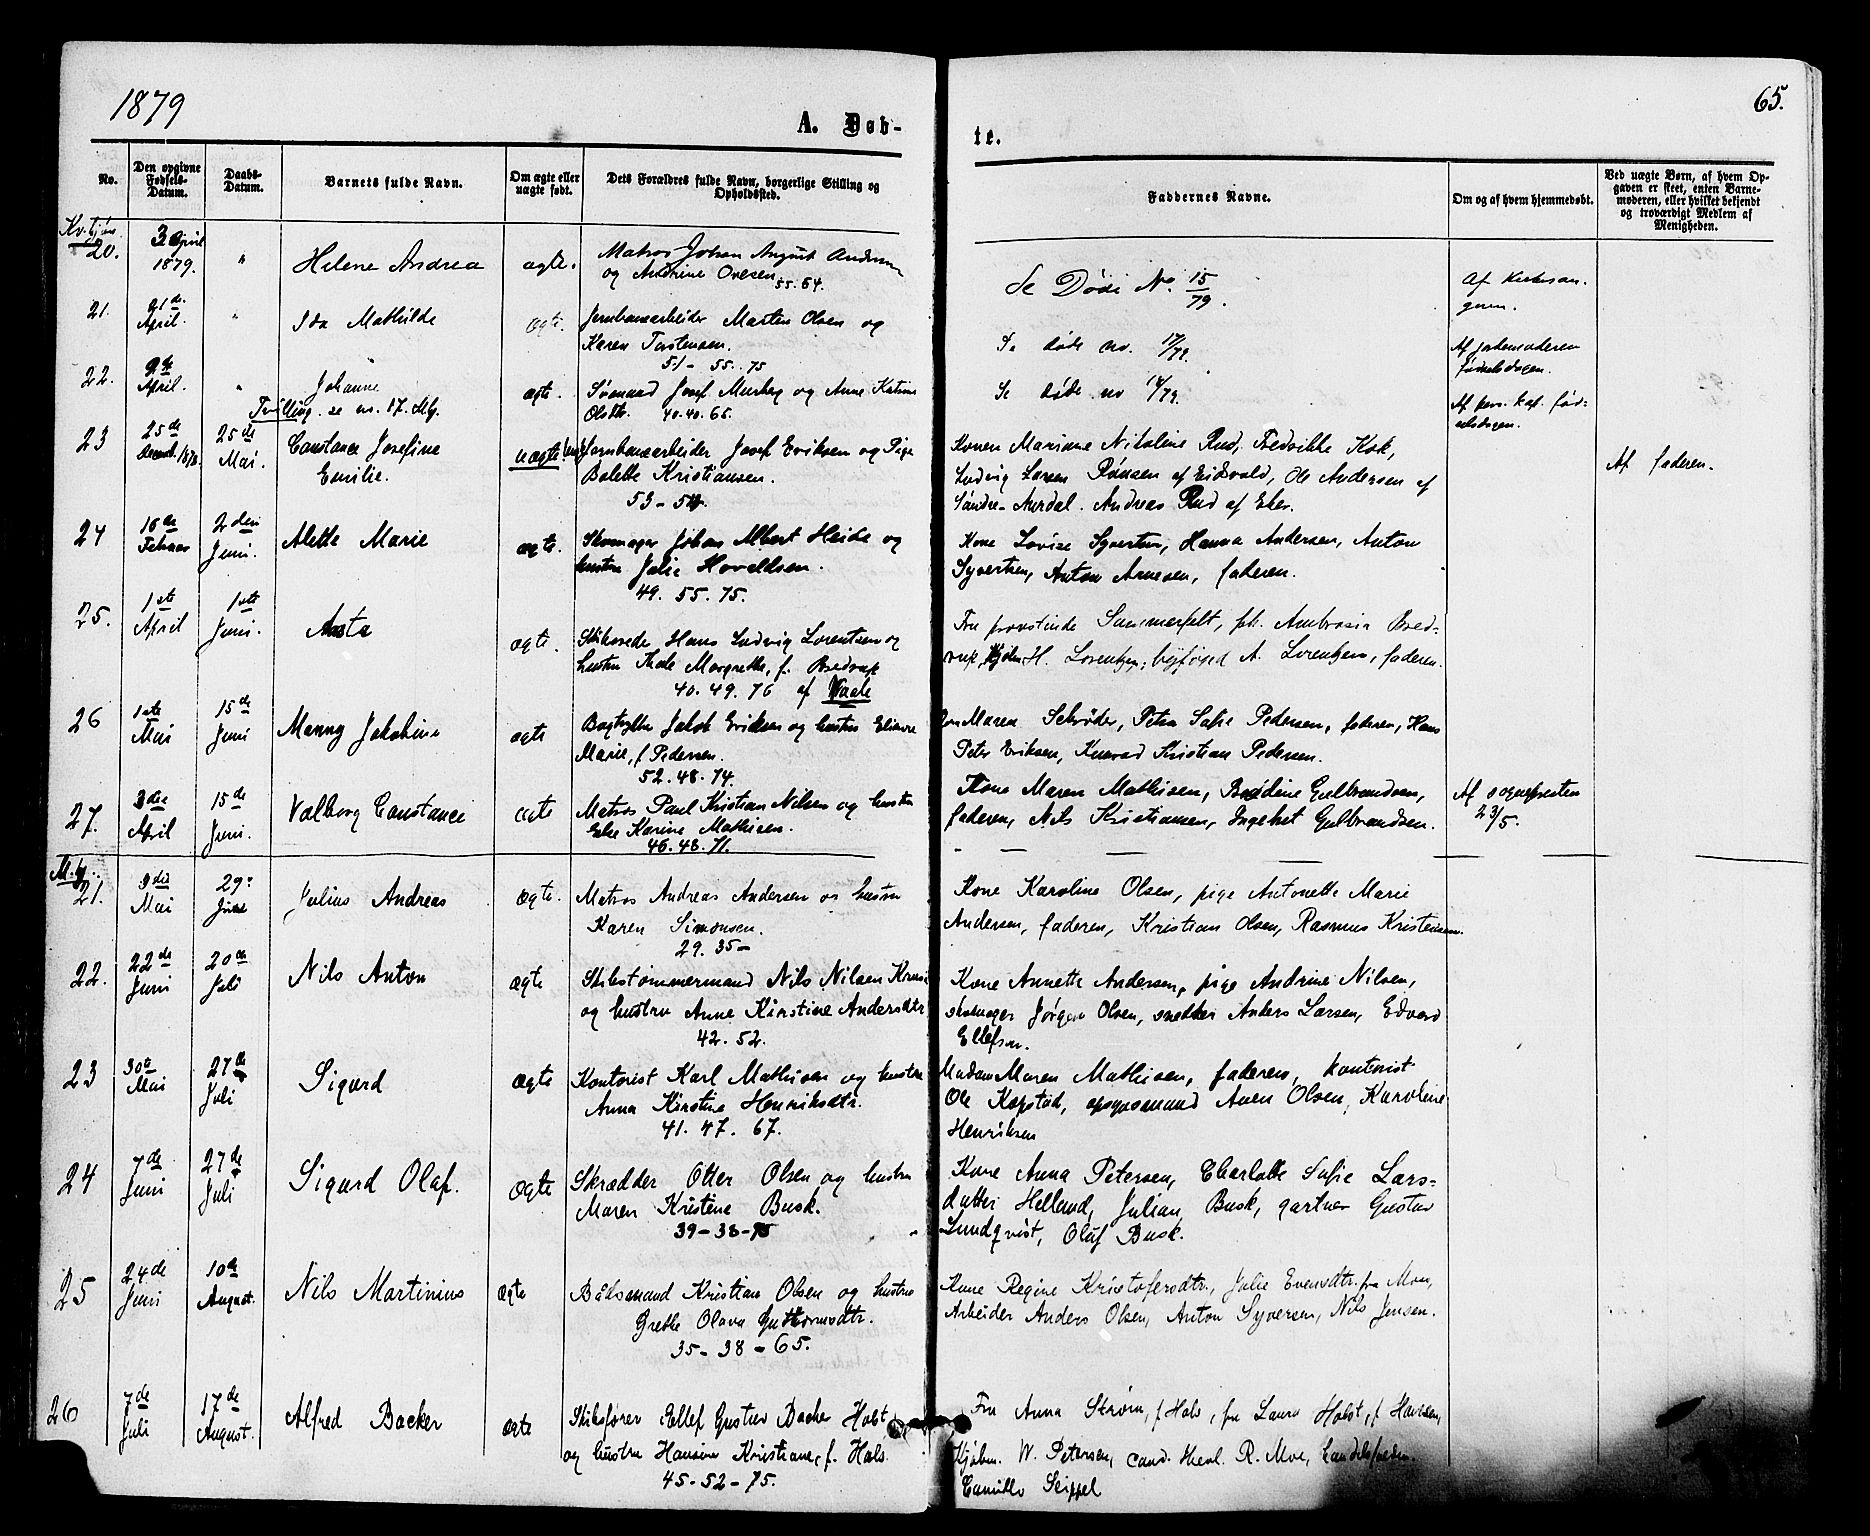 1879
65.
A. Døb-
te.
No.
Den opgivne Fødsels-Datum.
Daabs-Datum.
Barnets fulde Navn.
Om ægte eller uægte født.
Dets Forældres fulde Navn, borgerlige Stilling og Opholdssted.
Faddernes Navne.
Om og af hvem hjemmedøbt.
Ved uægte Børn, af hvem Opgaven er skeet, enten Barnemoderen, eller hvilket bekjendt og troværdigt Medlem af Menigheden.
Kv.kjøn
20.
3 April
1879.
"
Helene Andrea
ægte.
Matros Johan August Andersen
og Andrine Ovesen
55. 54.
Se Døde No. 15/79.
Af Kirkesan-
geren.
21.
21de
April.
"
Ida Mathilde
ægte.
Jernbanearbeider Martin Olsen og
Karen Torstensen.
51 - 55. 75
Se døde no. 17/79.
Af jordemoderen
fødselsdagen.
22.
9de
April.
"
Johanne
Tvilling. se no. 17. Mkj.
ægte.
Sømand Josef Murberg og Anne Katrine
Olsdtr. 40. 40. 65.
Se døde no 18/79.
Af pers. kap. fød-
selsdagen.
23
25de
Decemb. 1878
25de
Mai.
Constance Josefine
Emilie.
uægte
Jernbanearbeider Josef Eriksen og Pige
Bolette Kristiansen.
53 - 54.
Konen Mariane Nikoline Rud, Fredrikke Kok,
Ludvig Larsen Rønsen af Eidsvold, Ole Andersen af
Søndre-Aurdal. Andreas Rud af Eker.
Af faderen.
24
16de
Februar
2den
Juni.
Alette Marie
ægte.
Skomager Johan Albert Heide og
hustru Julie Hoveldsen.
49. 55. 75.
Kone Lovise Syvertsen, Hanna Andersen, Anton
Syvertsen, Anton Arnesen, faderen.
25.
1ste
April
1ste
Juni.
Aasta
ægte.
Skibsrede Hans Ludvig Lorentzen og
hustru Thale Margrethe, f. Bredrup
40. 49. 76 af Vaale
Fru provstinde Sommerfelt, fh. Ambrosia Bred-
rup, Kjøbm H. Lorentzen, byfoged A. Lorentzen, faderen.
26
1ste
Mai
15de
Juni
Manny Jakobine
ægte
Jakob Eriksen og hustru Elienre
Marie, f. Pedersen.
52. 48. 74.
Maren Schrøder, Petra Sofie Pedersen, faderen, Hans
Peter Eriksen, Konrad Kristian Pedersen.
27.
3die
April
15de
Juni.
Valborg Constance
ægte
Matros Paul Kristian Nilsen og hustru
Else Karine Mathisen.
46. 48. 71.
Kone Maren Mathisen, Bredine Gulbrandsen,
faderen, Nils Kristiansen, Ingebret Gulbrandsen.
Af sognepresten
23/5.
M.kj.
21.
3die
Mai
29.
Juni
Julius Andreas
ægte.
Matros Andreas Andersen og hustru
Karen Simonsen.
29. 35 -
Kone Karoline Olsen, pige Antonette Marie
Andersen, faderen, Kristian Olsen, Rasmus Kristensen.
22.
22de
Juni
20de
Juli
Nils Anton
ægte
Skibstømmermand Nils Nilsen Kruse
og hustru Anne Kirstine Andersdtr
42. 52.
Kone Annette Andersen, pige Andrine Nilsen,
skomager Jørgen Olsen, snekker Anders Larsen, Edvard
Ellefsen.
23
30te
Mai
27de
Juli
Sigurd
ægte
Kontorist Karl Mathisen og hustru
Anna Kirstine Henriksdtr.
41. 47. 67.
Madam Maren Mathisen, faderen, kontorist
Ole Kopstad, opsynsmand Aven Olsen, Karoline
Henriksen
24
7de
Juni
27de
Juli
Sigurd Olaf.
ægte
Skrædder Otter Olsen og hustru
Maren Kristine Busk.
39 - 38 - 75
Kone Anna Petersen, Charlotte Sofie Lars-
datter Helland, Julian Busk, gartner Gustav
Lundqvist, Oluf Busk.
25
24de
Juni
10de
August.
Nils Martinius
ægte
Bådsmand Kristian Olsen og hustru
Grethe Olava Guttormsdtr.
35 - 38 - 65.
Kone Regine Kristofersdtr., Julie Evensdtr. fra Moss,
Arbeider Anders Olsen, Anton Syversen, Nils Jensen.
26
7de
Juli
17de
August.
Alfred Backer
ægte
Skibsfører Ellef Gustav Backer Holst,
og hustru Hansine Kristiane, f. Hals.
45 - 52 - 75.
Fru Anna Strøm, f. Hals, fru Laura Holst, f. Hansen,
Kjøbm. W. Petersen, cand. theol. R. Moe, handelsfuldm.
Camillo Seippel